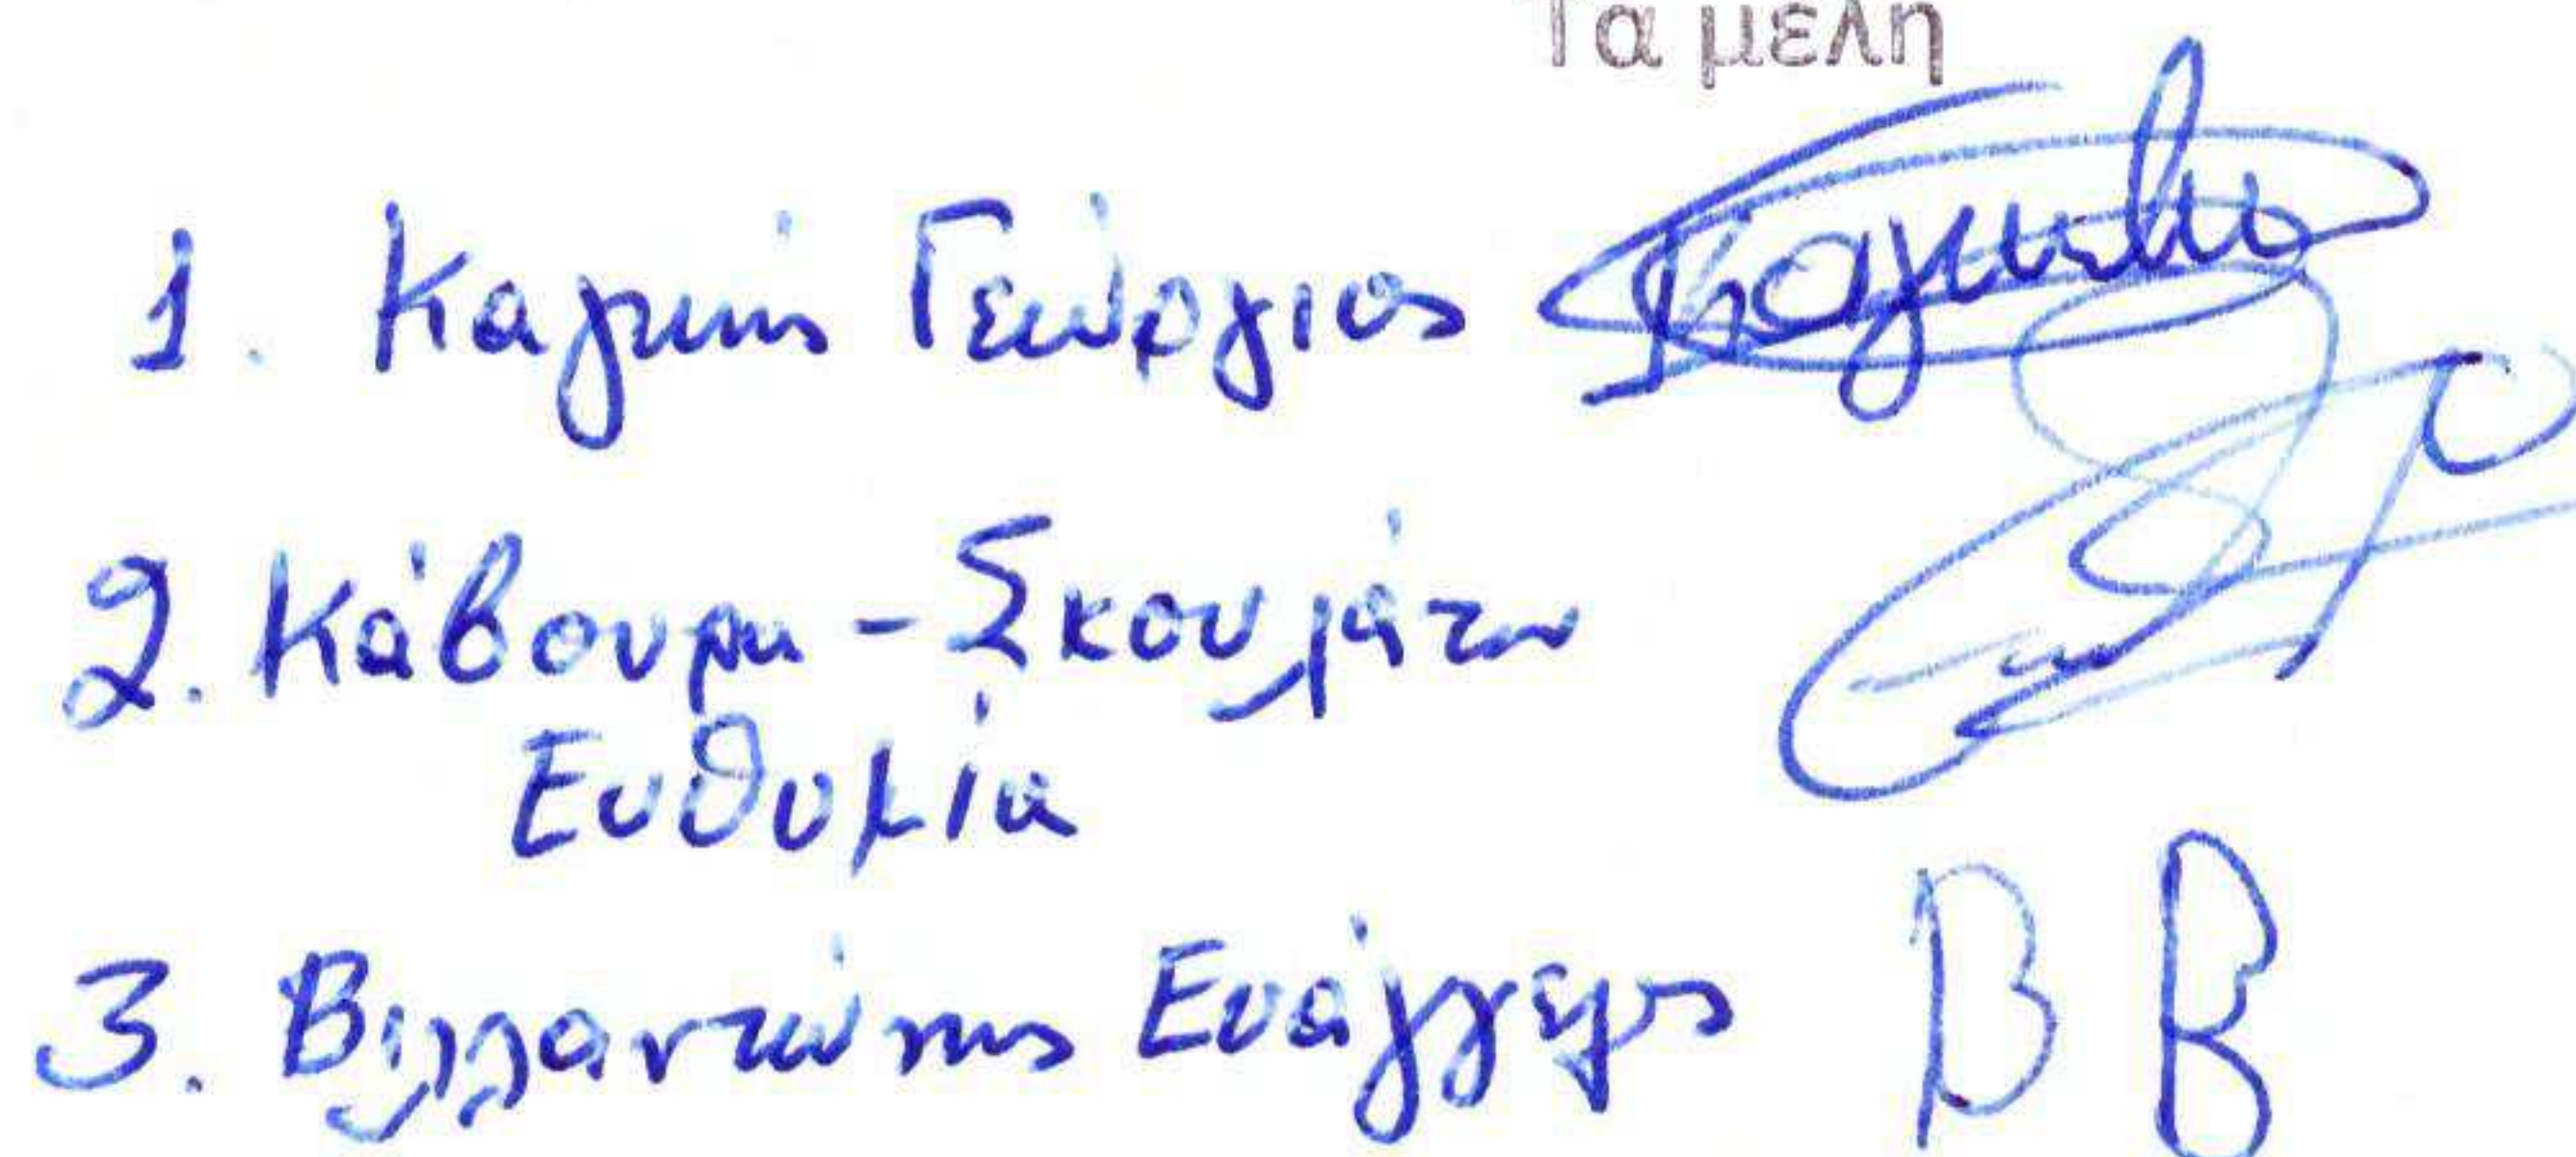 Τα μέλη
1. Καγκής Γεώργιος
2. Κάβουρα - Σκουλάτου
Ευθυμία
3. Βιλλαντώνης Ευάγγελος
Β Β